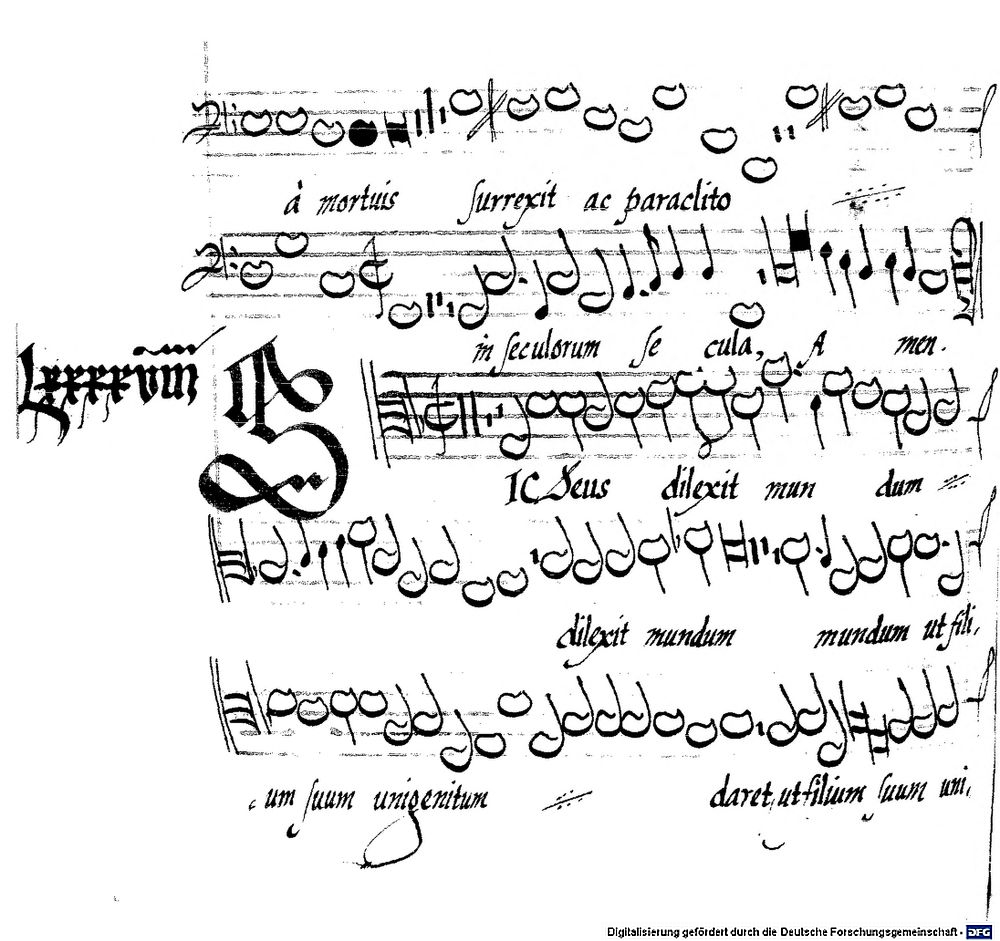 à mortuis surrexit ac paraclito
in seculorum se cula, A men.
Lxxxxviii
SIC Deus dilexit mun dum
dilexit mundum mundum ut fili,
um suum unigenitum daret, ut filium suum uni,
Digitalisierung gefördert durch die Deutsche Forschungsgemeinschaft - DFG